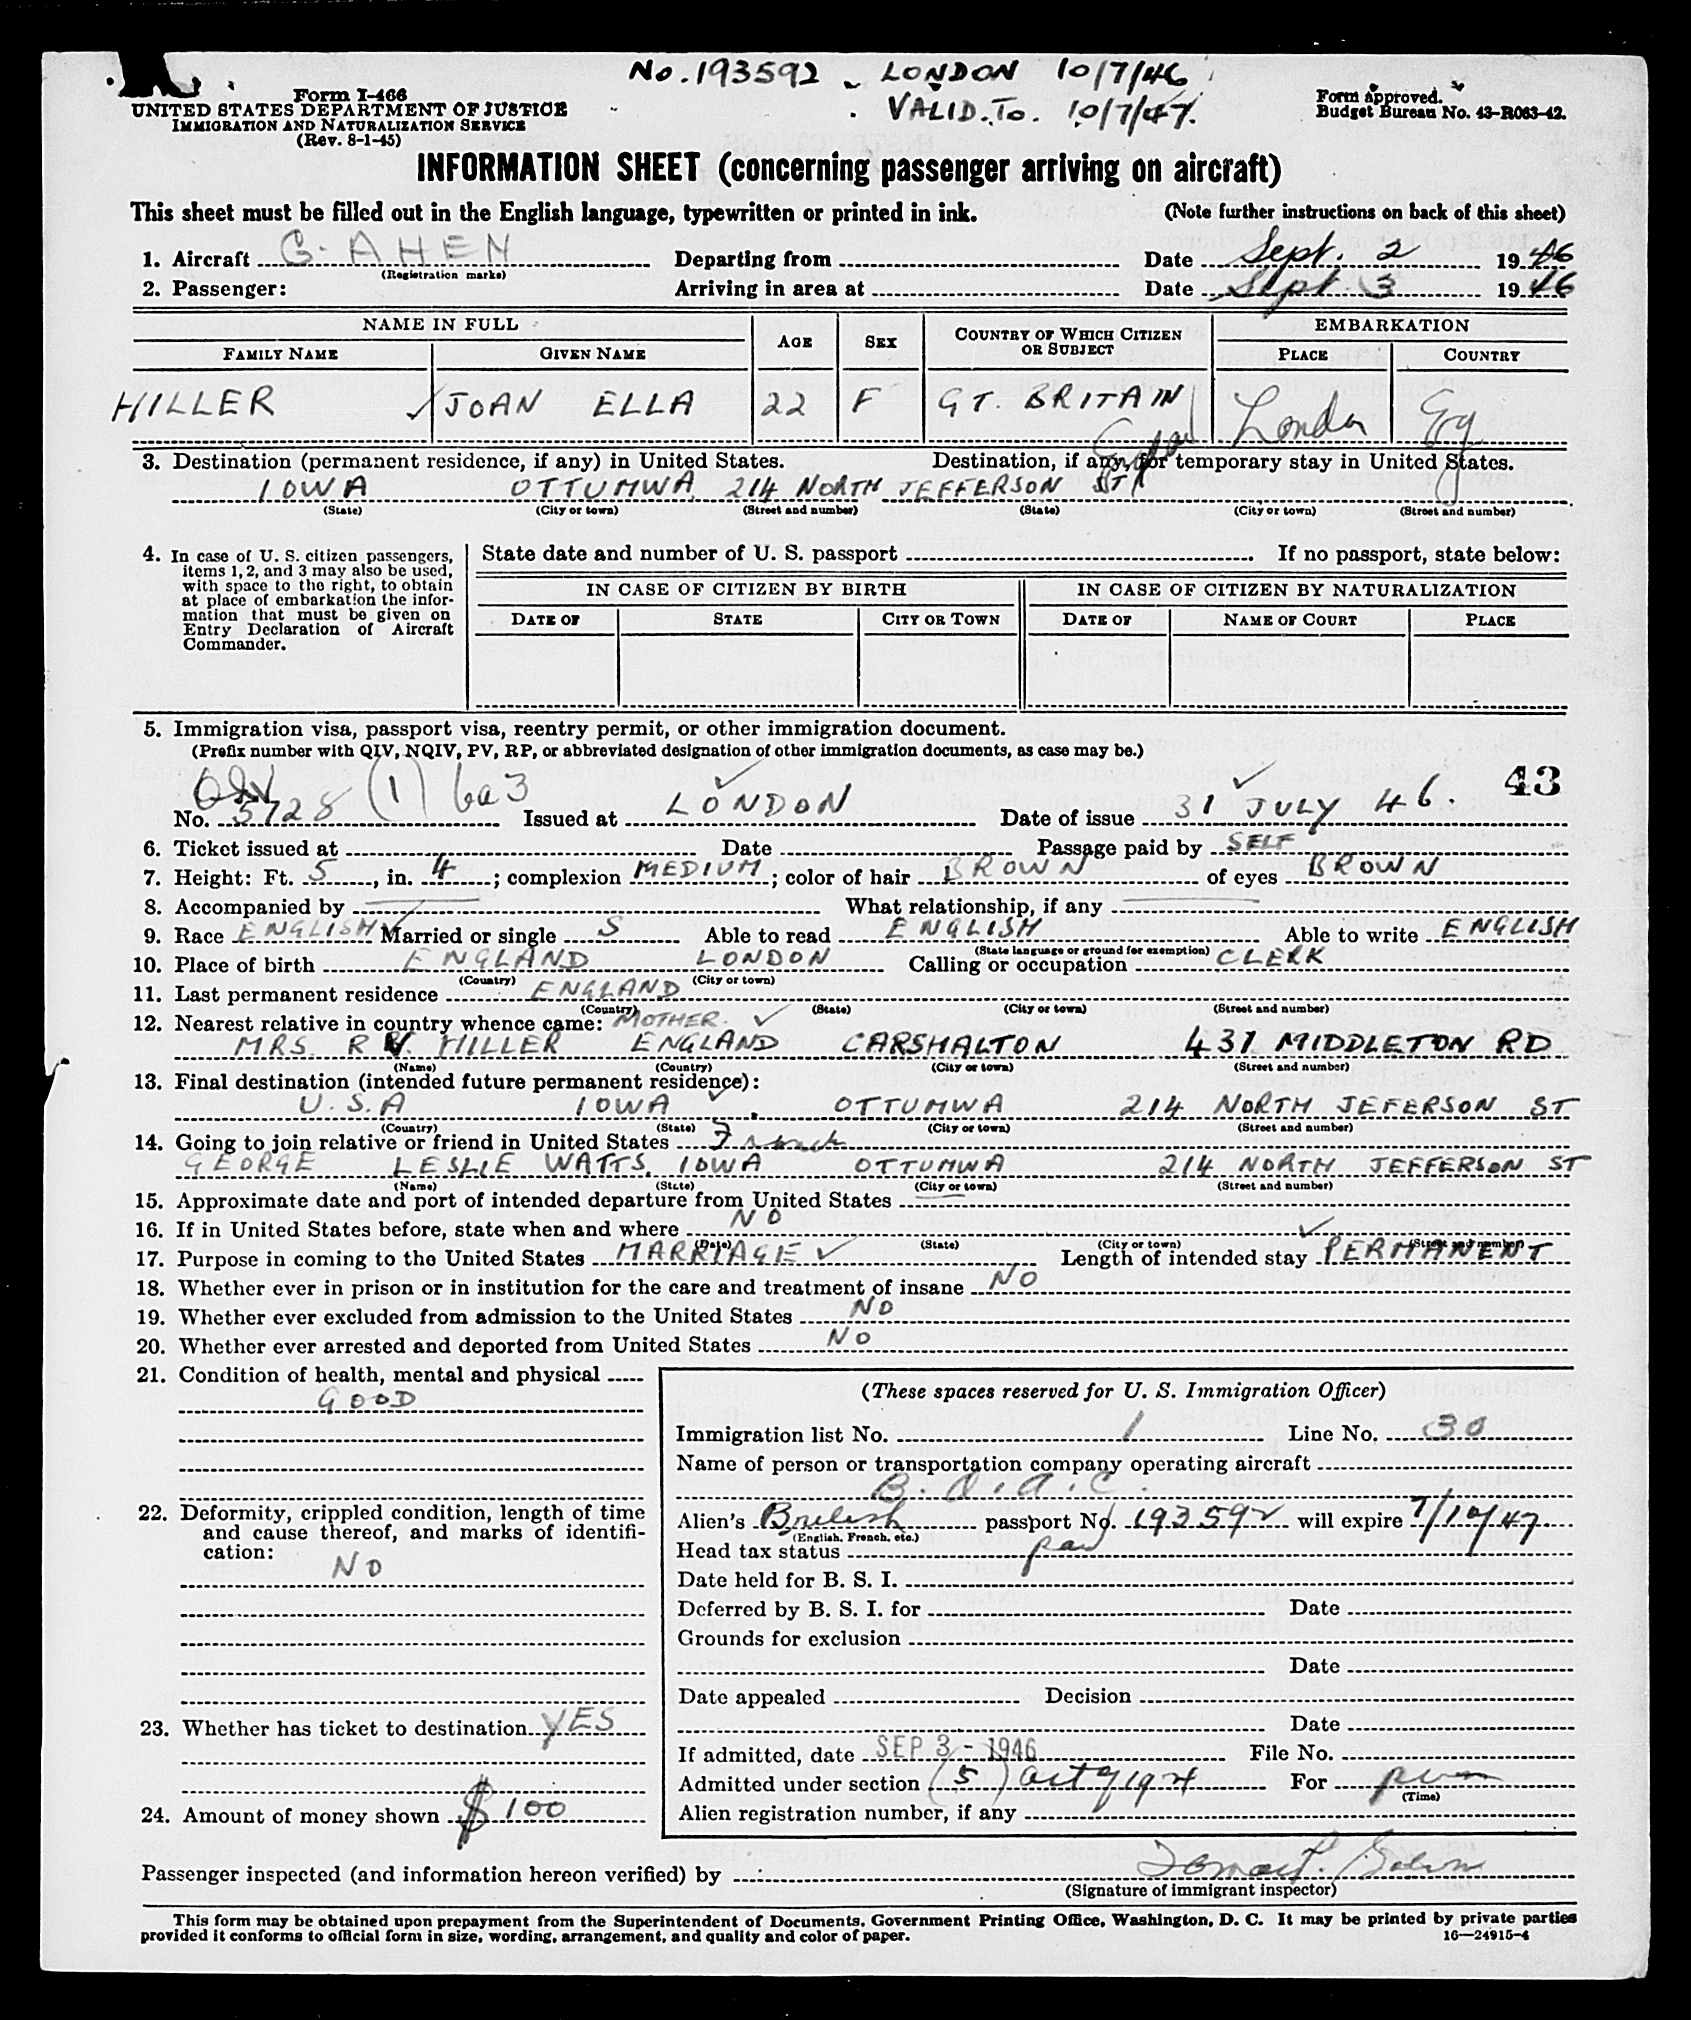 No. 193592 - LONDON 10/7/46
VALID. To. 10/7/47.
Form I-466
UNITED STATES DEPARTMENT OF JUSTICE
IMMIGRATION AND NATURALIZATION SERVICE
(Rev. 8-1-45)
Form approved.
Budget Bureau No. 43-R063-42.
INFORMATION SHEET (concerning passenger arriving on aircraft)
This sheet must be filled out in the English language, typewritten or printed in ink. (Note further instructions on back of this sheet)
1. Aircraft G-AHEN Departing from Date Sept. 2 1946
(Registration marks)
2. Passenger: Arriving in area at Date Sept 3 1946
NAME IN FULL AGE SEX COUNTRY OF WHICH CITIZEN OR SUBJECT EMBARKATION
FAMILY NAME GIVEN NAME PLACE COUNTRY
HILLER JOAN ELLA 22 F GT. BRITAIN London Eng
3. Destination (permanent residence, if any) in United States. Destination, if any, for temporary stay in United States.
IOWA OTTUMWA 214 NORTH JEFFERSON ST
(State) (City or town) (Street and number) (State) (City or town) (Street and number)
4. In case of U. S. citizen passengers, items 1, 2, and 3 may also be used, with space to the right, to obtain at place of embarkation the information that must be given on Entry Declaration of Aircraft Commander.
State date and number of U. S. passport If no passport, state below:
IN CASE OF CITIZEN BY BIRTH IN CASE OF CITIZEN BY NATURALIZATION
DATE OF STATE CITY OR TOWN DATE OF NAME OF COURT PLACE
5. Immigration visa, passport visa, reentry permit, or other immigration document.
(Prefix number with QIV, NQIV, PV, RP, or abbreviated designation of other immigration documents, as case may be.)
QIV (1) 6a3 43
No. 5728 Issued at LONDON Date of issue 31 JULY 46.
6. Ticket issued at Date Passage paid by SELF
7. Height: Ft. 5, in. 4; complexion MEDIUM; color of hair BROWN of eyes BROWN
8. Accompanied by What relationship, if any
9. Race ENGLISH Married or single S Able to read ENGLISH Able to write ENGLISH
(State language or ground for exemption)
10. Place of birth ENGLAND LONDON Calling or occupation CLERK
(Country) (City or town)
11. Last permanent residence ENGLAND
(Country) (State) (City or town) (Street and number)
12. Nearest relative in country whence came: MOTHER
MRS. R V. HILLER ENGLAND CARSHALTON 431 MIDDLETON RD
(Name) (Country) (City or town) (Street and number)
13. Final destination (intended future permanent residence):
U.S.A IOWA OTTUMWA 214 NORTH JEFERSON ST
(Country) (State) (City or town) (Street and number)
14. Going to join relative or friend in United States
GEORGE LESLIE WATTS. IOWA OTTUMWA 214 NORTH JEFFERSON ST
(Name) (State) (City or town) (Street and number)
15. Approximate date and port of intended departure from United States
16. If in United States before, state when and where NO
(Date) (State) (City or town) (Street and number)
17. Purpose in coming to the United States MARRIAGE Length of intended stay PERMANENT
18. Whether ever in prison or in institution for the care and treatment of insane NO
19. Whether ever excluded from admission to the United States NO
20. Whether ever arrested and deported from United States NO
21. Condition of health, mental and physical
GOOD
22. Deformity, crippled condition, length of time and cause thereof, and marks of identification:
NO
23. Whether has ticket to destination YES
24. Amount of money shown $100
(These spaces reserved for U. S. Immigration Officer)
Immigration list No. 1 Line No. 30
Name of person or transportation company operating aircraft
B.O.A.C.
Alien's British passport No. 193592 will expire 7/10/47
(English, French, etc.)
Head tax status
Date held for B. S. I.
Deferred by B. S. I. for Date
Grounds for exclusion
Date
Date appealed Decision
Date
If admitted, date SEP 3 - 1946 File No.
Admitted under section (5) act of 1924 For perm
(Time)
Alien registration number, if any
Passenger inspected (and information hereon verified) by
(Signature of immigrant inspector)
This form may be obtained upon prepayment from the Superintendent of Documents, Government Printing Office, Washington, D. C. It may be printed by private parties
provided it conforms to official form in size, wording, arrangement, and quality and color of paper. 16—24915-4